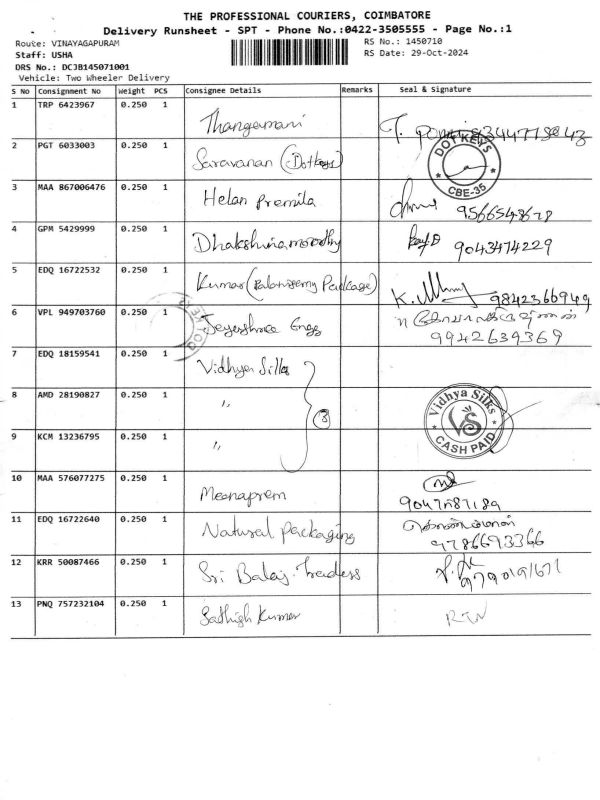 THE PROFESSIONAL COURIERS, COIMBATORE
Delivery Runsheet - SPT - Phone No.:0422-3505555 - Page No.:1
Route: VINAYAGAPURAM
RS No.: 1450710
Staff: USHA
RS Date: 29-Oct-2024
DRS No.: DCJB145071001
Vehicle: Two Wheeler Delivery
S No Consignment No Weight PCS Consignee Details Remarks Seal & Signature
1 TRP 6423967 0.250 1 Thangamani
2 PGT 6033003 0.250 1 Saravanan (Dotkeys) DOT KEYS CBE-35
3 MAA 867006476 0.250 1 Helan Premila 9566548678
4 GPM 5429999 0.250 1 Dhakshinamoorthy 9043474229
5 EDQ 16722532 0.250 1 Kumar Package) 9842366949
6 VPL 949703760 0.250 1 Jeyashree Engg 9942639369
7 EDQ 18159541 0.250 1 Vidhya Silks
8 AMD 28190827 0.250 1 ,, (3) Vidhya Silks VS CASH PAID
9 KCM 13236795 0.250 1 ,,
10 MAA 576077275 0.250 1 Meenaprem 9047587189
11 EDQ 16722640 0.250 1 Natural Packaging 9786693366
12 KRR 50087466 0.250 1 Sri Balaji Traders
13 PNQ 757232104 0.250 1 Sathish Kumar